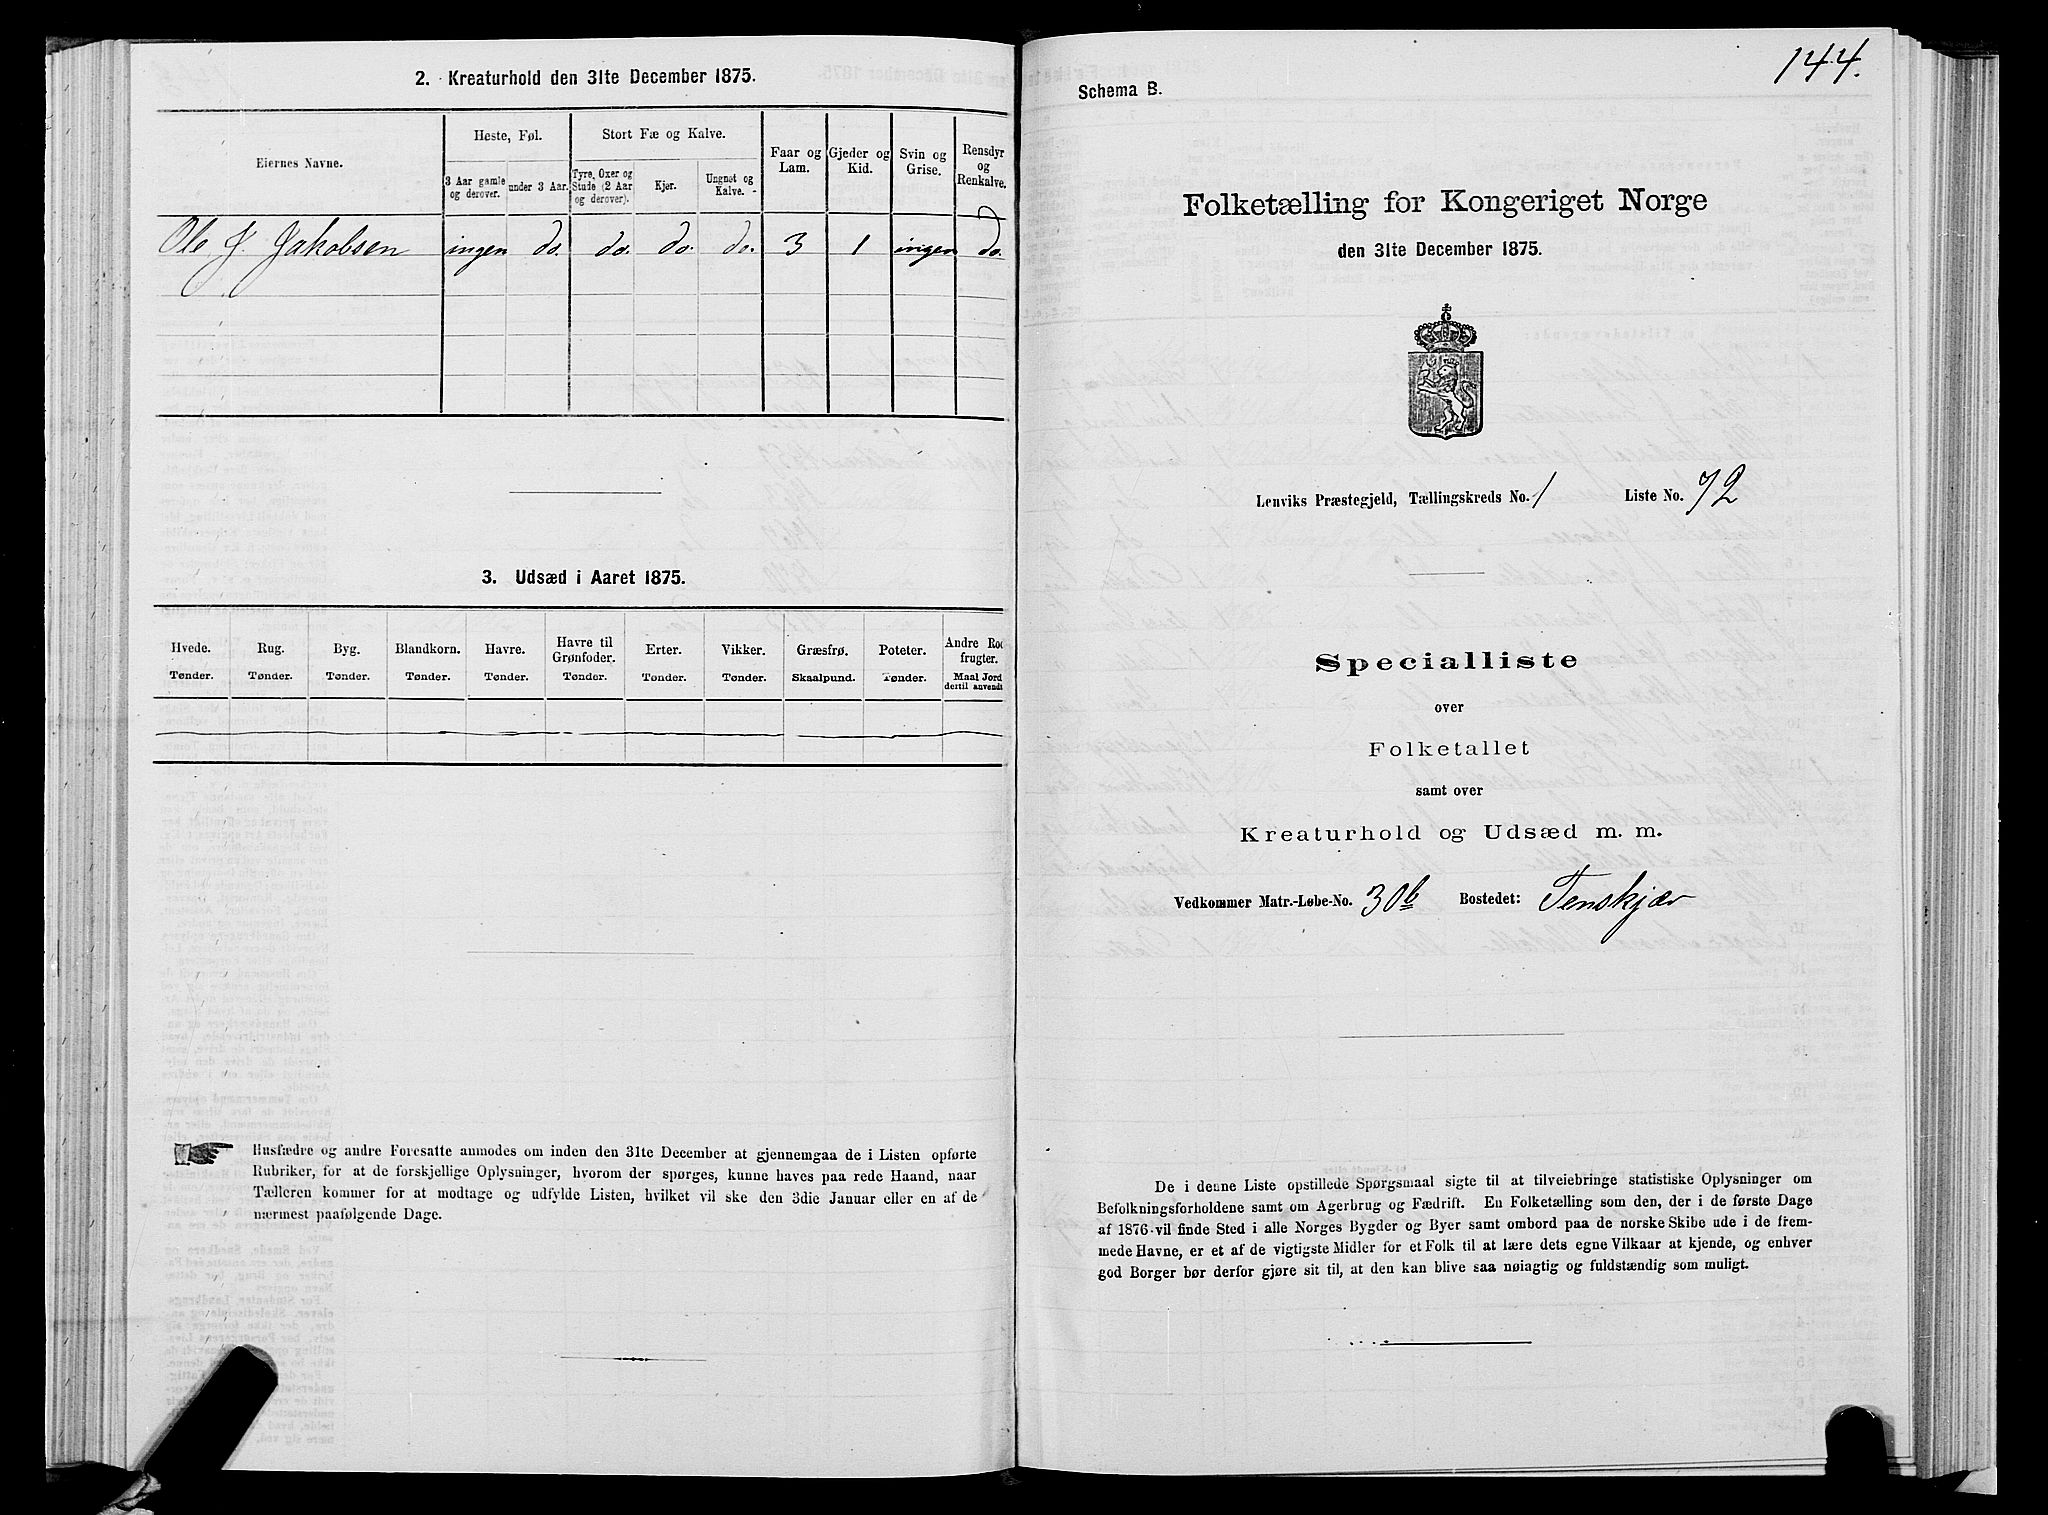 2. Kreaturhold den 31te December 1875.
Eiernes Navne.
Heste, Føl.
Stort Fæ og Kalve.
Faar og Lam.
Gjeder og Kid.
Svin og Grise.
Rensdyr og Renkalve.
3 Aar gamle og derover.
under 3 Aar.
Tyre, Oxer og Stude (2 Aar og derover).
Kjør.
Ungnøt og Kalve.
Ole J. Jakobsen ingen do. do. do. do. 3 1 ingen do.
3. Udsæd i Aaret 1875.
Hvede. Rug. Byg. Blandkorn. Havre. Havre til Grønfoder. Erter. Vikker. Græsfrø. Poteter. Andre Rodfrugter.
Tønder. Tønder. Tønder. Tønder. Tønder. Tønder. Tønder. Tønder. Skaalpund. Tønder. Maal Jord dertil anvendt
Husfædre og andre Foresatte anmodes om inden den 31te December at gjennemgaa de i Listen opførte
Rubriker, for at de forskjellige Oplysninger, hvorom der spørges, kunne haves paa rede Haand, naar
Tælleren kommer for at modtage og udfylde Listen, hvilket vil ske den 3die Januar eller en af de
nærmest paafølgende Dage.
144.
Schema B.
Folketælling for Kongeriget Norge
den 31te December 1875.
Lenviks Præstegjeld, Tællingskreds No. 1 Liste No. 72
Specialliste
over
Folketallet
samt over
Kreaturhold og Udsæd m. m.
Vedkommer Matr.-Løbe-No. 30b Bostedet: Tenskjær
De i denne Liste opstillede Spørgsmaal sigte til at tilveiebringe statistiske Oplysninger om
Befolkningsforholdene samt om Agerbrug og Fædrift. En Folketælling som den, der i de første Dage
af 1876 vil finde Sted i alle Norges Bygder og Byer samt ombord paa de norske Skibe ude i de frem-
mede Havne, er et af de vigtigste Midler for et Folk til at lære dets egne Vilkaar at kjende, og enhver
god Borger bør derfor gjøre sit til, at den kan blive saa nøiagtig og fuldstændig som muligt.